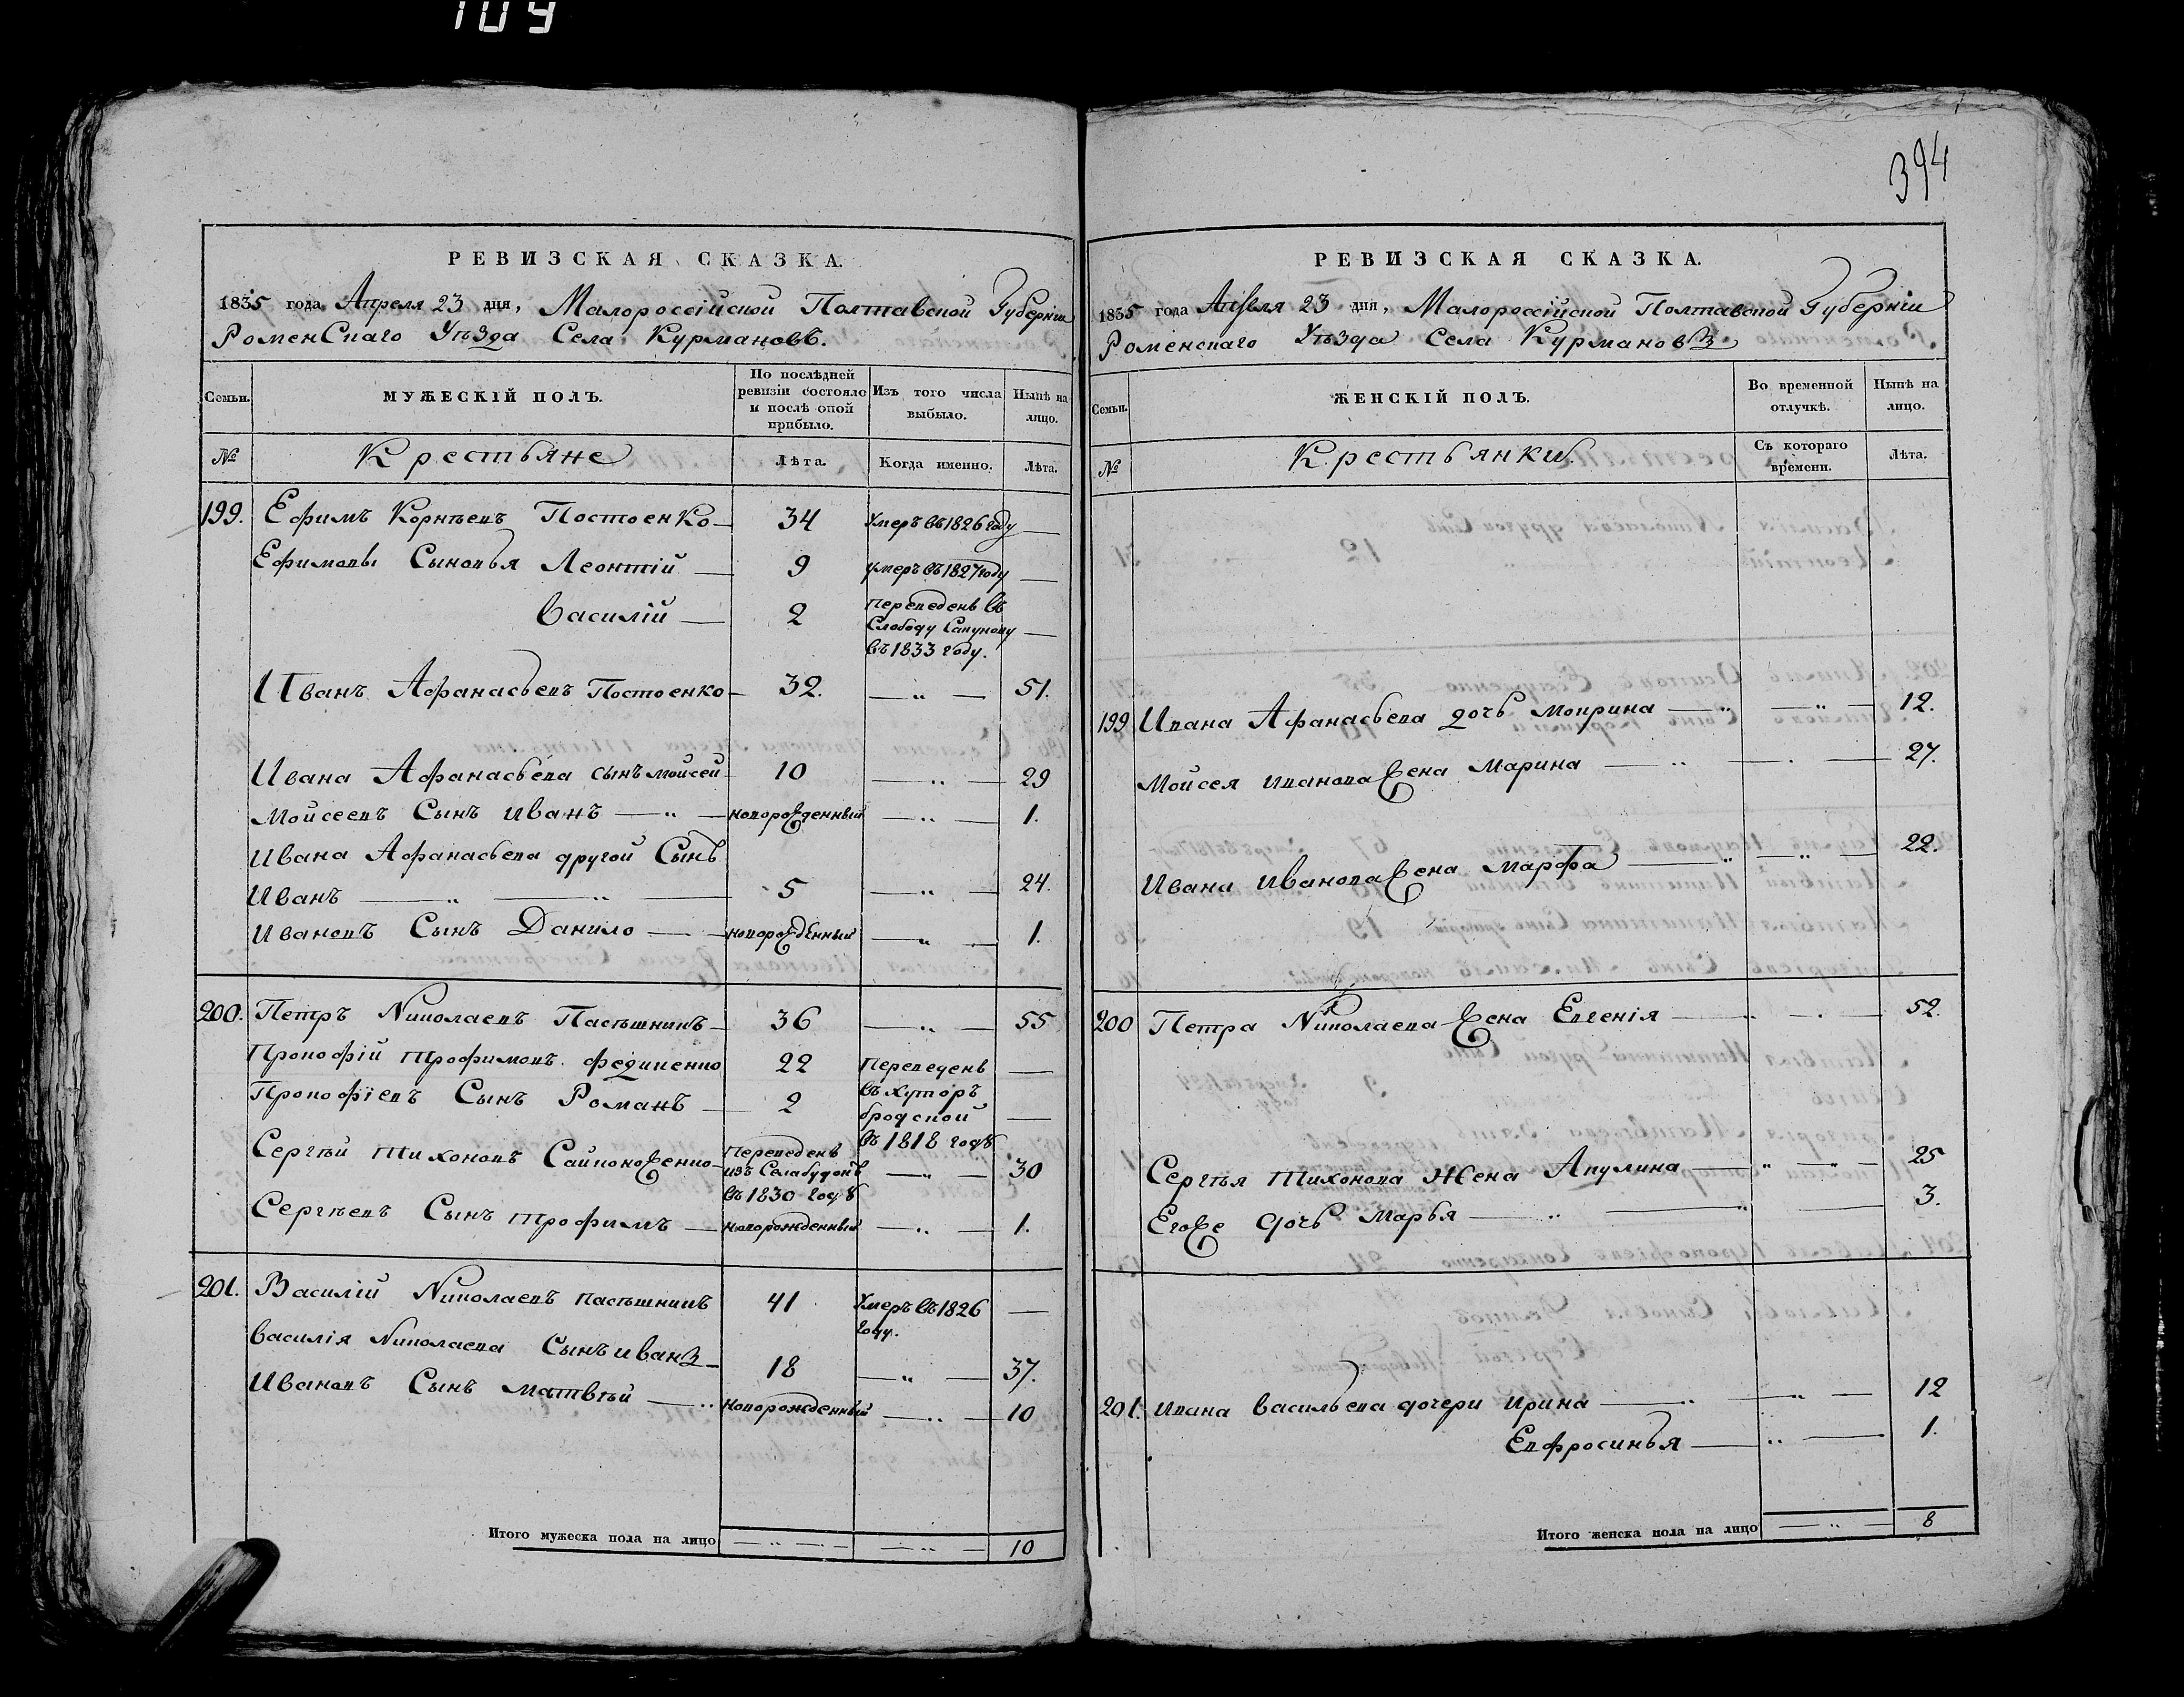 109
РЕВИЗСКАЯ СКАЗКА.
1835 года Апреля 23 дня, Малороссійской Полтавской Губерніи
Роменскаго Уѣзда Села Курмановъ.
Семьи.
МУЖЕСКІЙ ПОЛЪ.
По послѣдней ревизіи состояло и послѣ оной прибыло.
Изъ того числа выбыло.
Нынѣ на лицо.
№ Крестьяне Лѣта. Когда именно. Лѣта.
199. Ефимъ Корнѣевъ Постоенко — 34 Умеръ въ 1826 году —
Ефимовы Сыновья Леонтій — 9 умеръ въ 1827 году —
Василій — 2 Переведенъ въ
Слободу Сакунову —
въ 1833 году.
Иванъ Афанасьевъ Постоенко — 32. — „ — 51.
Ивана Афанасьева сынъ Мойсей 10 — „ — 29
Мойсеевъ Сынъ Иванъ — „ — новорожденный — „ — 1.
Ивана Афанасьева другой Сынъ
Иванъ — „ — „ — 5 — „ — 24.
Ивановъ Сынъ Данило — новорожденный — „ — 1.
200. Петръ Николаевъ Пасѣшникъ — 36 — „ — 55
Прокофій Трофимовъ Федченко 22 Переведенъ —
въ хуторъ
Прокофіевъ Сынъ Романъ — 2 бродской —
въ 1818 годѣ
Сергѣй Тихоновъ — Переведенъ
въ 1830 годѣ — „ — 30
Сергѣевъ Сынъ Трофимъ — новорожденный — „ — 1.
201. Василій Николаевъ Пасѣшникъ 41 Умеръ въ 1826
году. —
Василія Николаева Сынъ Иванъ — 18 — „ — 37.
Ивановъ Сынъ Матвѣй — „ новорожденный — „ — 10
Итого мужеска пола на лицо — „ — — „ — 10
394
РЕВИЗСКАЯ СКАЗКА.
1835 года Апреля 23 дня, Малороссійской Полтавской Губерніи
Роменскаго Уѣзда Села Курмановъ
Семьи.
ЖЕНСКІЙ ПОЛЪ.
Во временной отлучкѣ.
Нынѣ на лицо.
№ Крестьянки. Съ котораго времени. Лѣта.
199 Ивана Афанасьева дочь Мокрина — „ — „ — 12.
Мойсея Иванова жена Марина — „ — „ — 27.
Ивана Иванова жена Марфа — „ — „ — 22.
200 Петра Николаева жена Евгенія — „ — „ — 52.
Сергѣя Тихонова жена Акулина — „ — „ — 25
Его же дочь Марья — „ — „ — 3.
201. Ивана Васильева дочери Ирина — „ — „ — 12
Евфросинья — „ — 1.
Итого женска пола на лицо — „ — 8